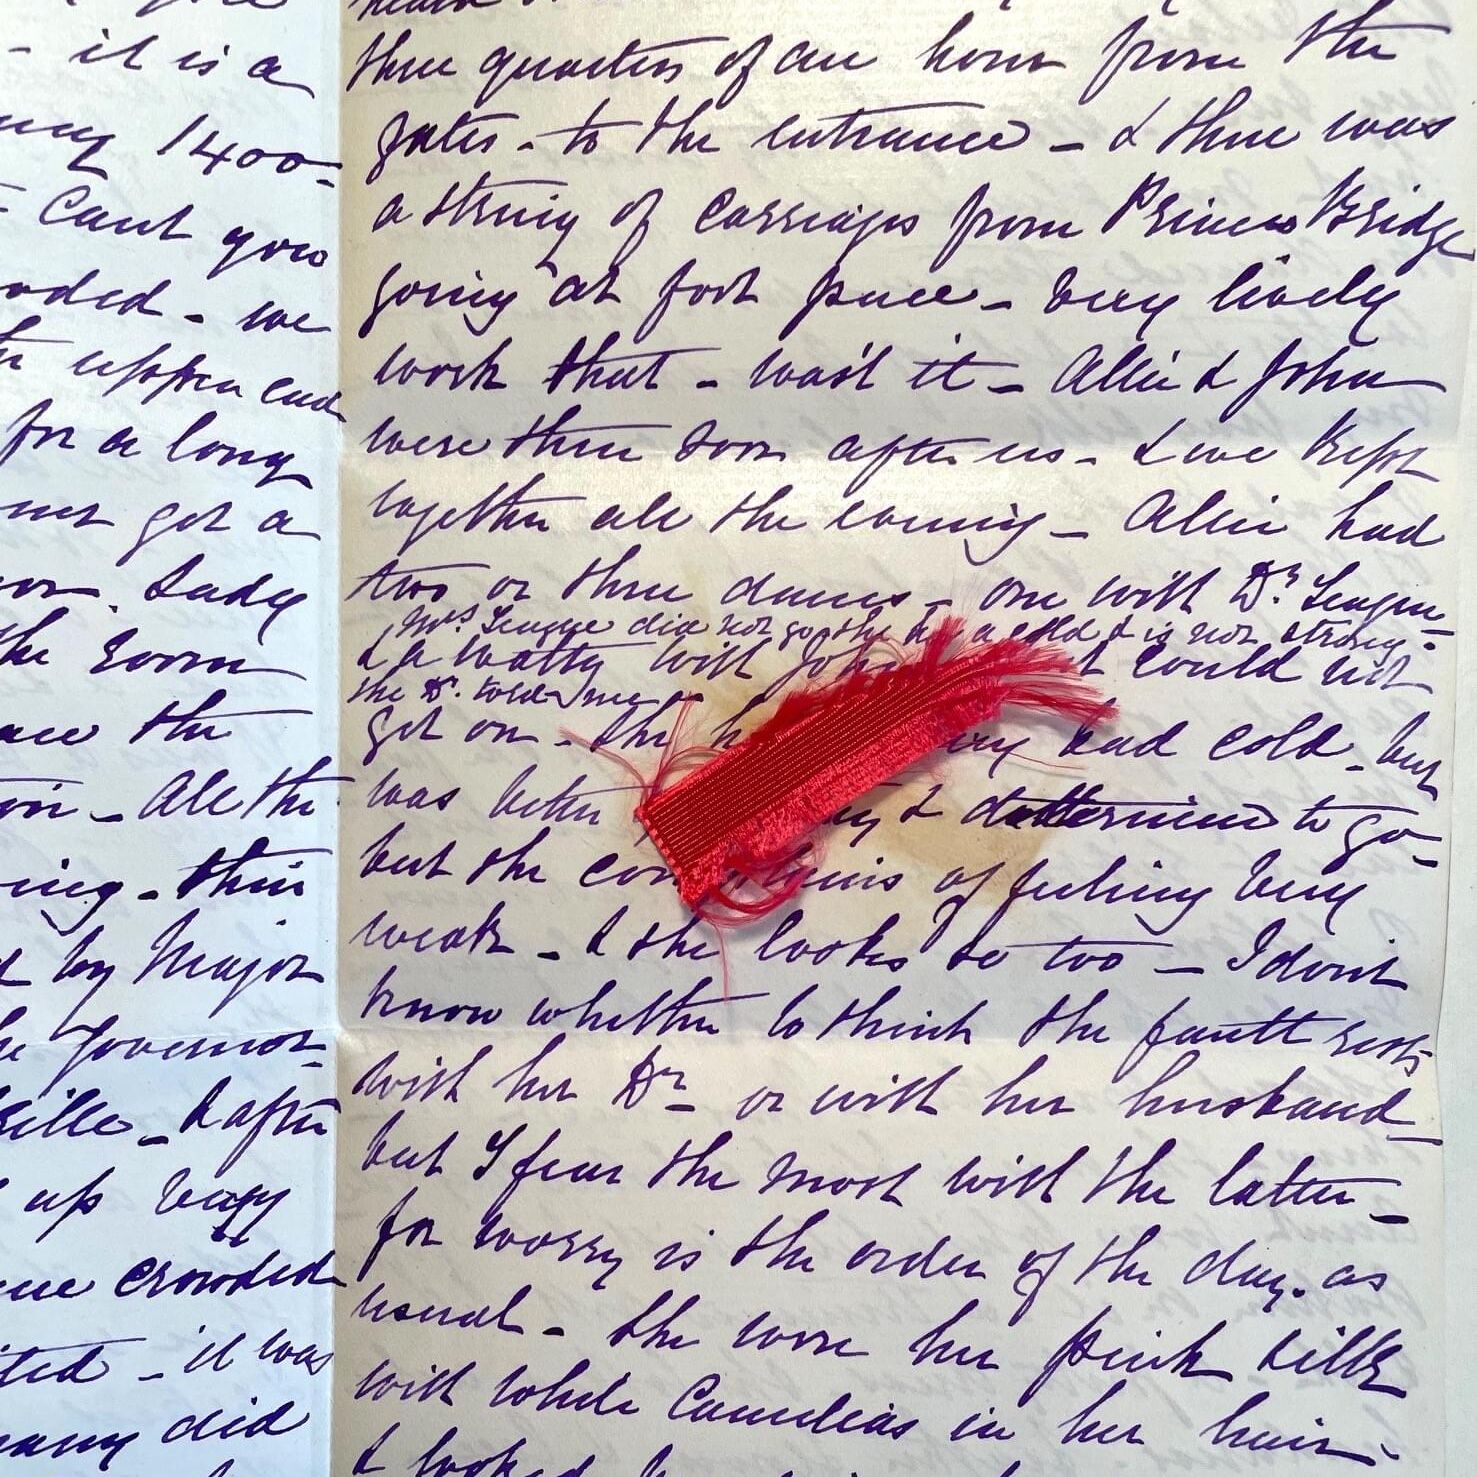 - it is a
1400-
- Cant grow
- we
upper end
for a long
got a
. Lady
the room
the
- All the
ing - their
by Major
Governor-
ville - & after
up very
crowded
- it was
many did
three quarters of an hour from the
gates - to the entrance - & there was
a string of carriages from Princes Bridge
going at foot pace - very lively
work that - was't it - Allie & John
were there soon after us - & we kept
together all the evening - Allie had
two or three dances - one with Dr. Teague -
Mrs Teague did not go she a cold & is not strong -
& a waltz with John could not
the Dr. told me
get one - she bad cold - but
was better & determined to go -
but she of feeling very
weak - & she looks so too - I don't
know whether to think the fault rests
with her Dr - or with her husband -
but I fear the most with the latter -
for worry is the order of the day. as
usual - She wore her pink silk
with white Camelias in her hair -
& looked